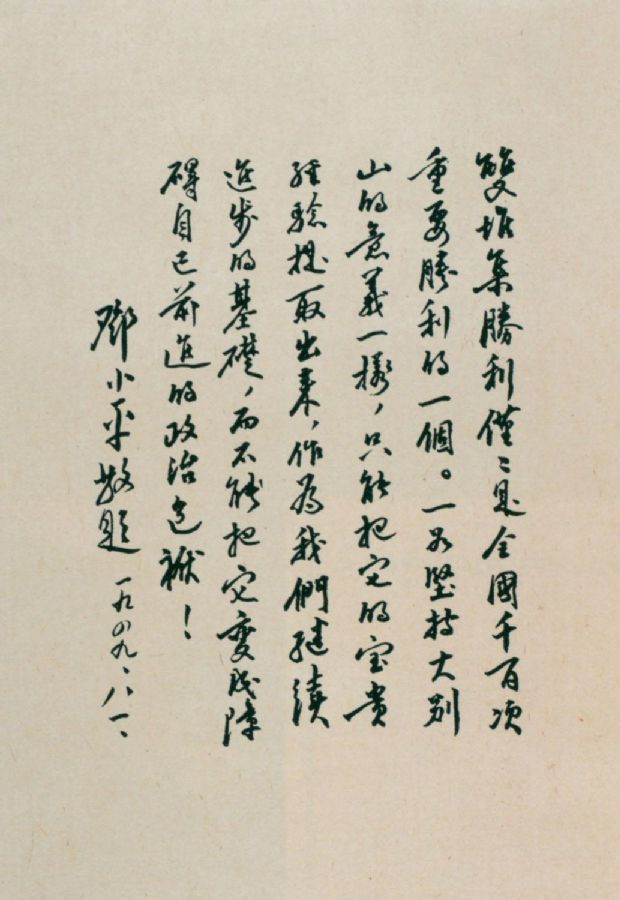 雙堆集勝利僅〻是全國千百次
重要勝利的一個。一如堅持大别
山的意義一樣，只能把它的宝贵
经驗提取出来，作為我們继續
進步的基礎，而不能把它变成障
碍自己前進的政治包袱！
鄧小平敬題 一九四九、八一、